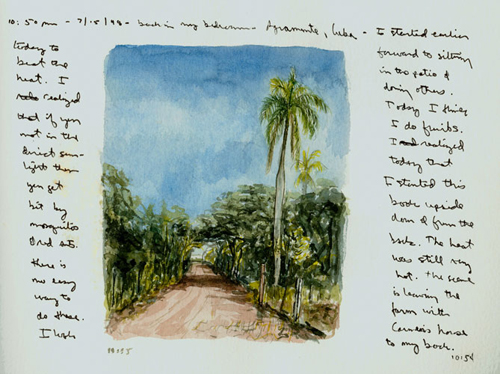 10:50 pm - 7/15/98 - back in my bedroom - Agramonte, Cuba - I started earlier
today to
beat the
heat. I
realized
that if you
not in the
direct sun-
light then
you get
bit by
mosquitos
& red ants.
there is
no easy
way to
do these.
I look
forward to sitting
in the patio &
doing others.
Today I think
I do fruits.
I realized
today that
I started this
book upside
down & from the
back. The heat
was still very
hot. The scene
is leaving the
farm with
horse
to my back.
10:54